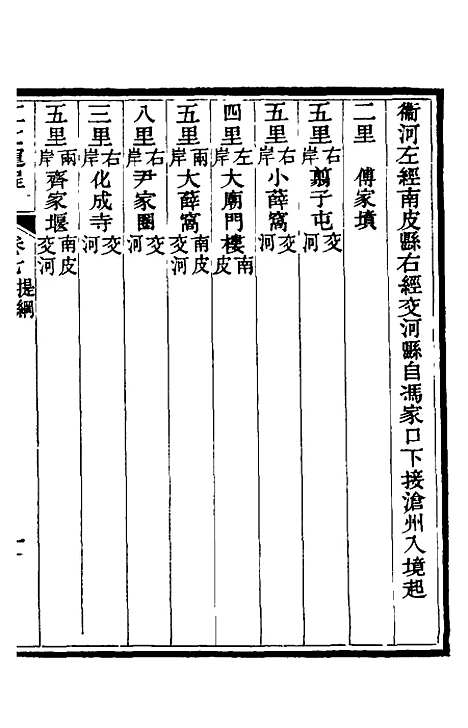 衞河左經南皮縣右經交河縣自馮家口下接滄州入境起
二里 傅家墳
五里右岸翦子屯交河
五里右岸小薛窩交河
四里左岸大廟門樓南皮
五里兩岸大薛窩南皮交河
八里右岸尹家圈交河
三里右岸化成寺交河
五里兩岸齊家堰南皮交河
卷七提綱